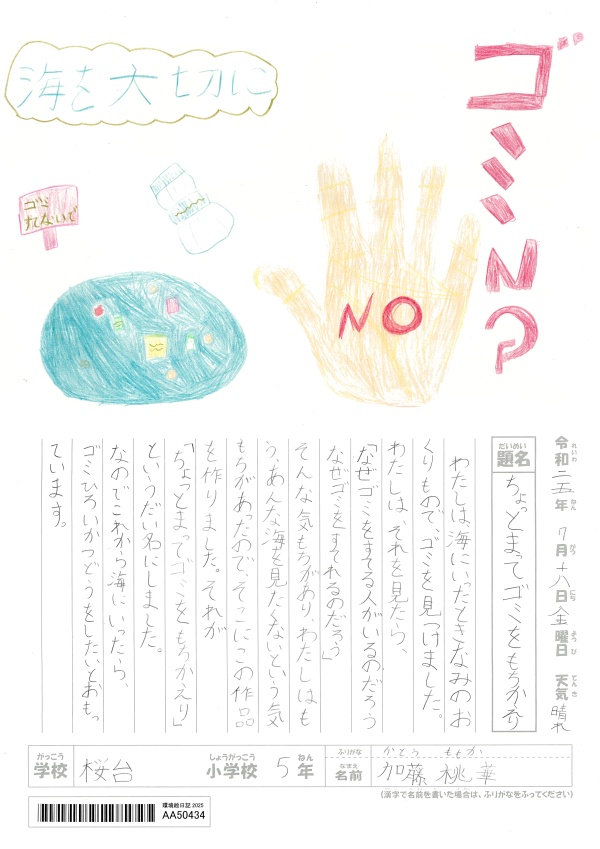 海を大切に
ゴミNO?
ゴミ
すてないで
NO
令和二五年 7月十八日金曜日 天気 晴れ
れいわ ねん がつ にち ようび てんき
だいめい
題名 ちょっとまってゴミをもちかえり
わたしは、海にいたときなみのお
くりもので、ゴミを見つけました。
わたしは、それを見たら、
「なぜゴミをすてる人がいるのだろう
なぜゴミをすてれるのだろう」
そんな気もちがあり、わたしはも
う、あんな海を見たくないという気
もちがあったので、そっこにこの作品
を作りました。それが
「ちょっとまってゴミをもちかえり」
というだい名にしました。
なのでこれから海にいったら、
ゴミひろいかつどうをしたいとおもっ
ています。
がっこう しょうがっこう ねん ふりがな かとう ももか
学校 桜台 小学校 5年 なまえ 名前 加藤 桃華
(漢字で名前を書いた場合は、ふりがなをふってください)
環境絵日記 2025
AA50434